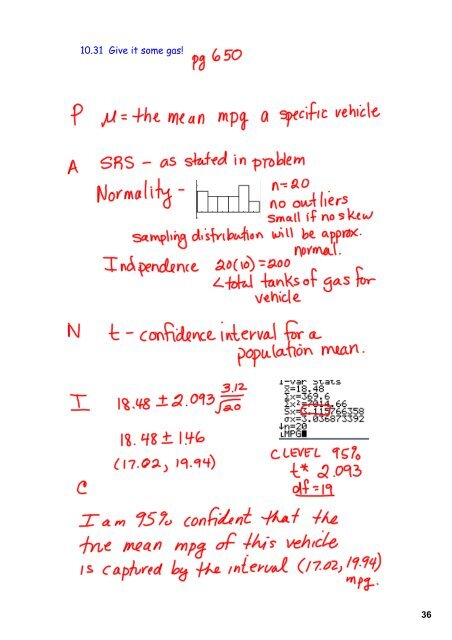 10.31 Give it some gas!
pg 650
P μ = the mean mpg a specific vehicle
A SRS - as stated in problem
Normality - n=20
no outliers
small if no skew
sampling distribution will be approx.
normal.
Indpendence 20(10) = 200
< total tanks of gas for
vehicle
N t - confidence interval for a
population mean.
I 18.48 ± 2.093 3.12/√20
18.48 ± 146
(17.02, 19.94)
1-Var Stats
x̄=18.48
Σx=369.6
Σx²=7014.66
Sx=3.115766358
σx=3.036873392
↓n=20
LMPG
C LEVEL 95%
t* 2.093
df = 19
C
I am 95% confident that the
true mean mpg of this vehicle
is captured by the interval (17.02, 19.94)
mpg.
36